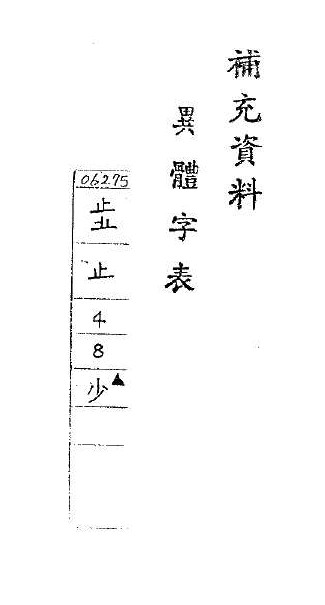 補充資料
異體字表
06275
止
4
8
少▲